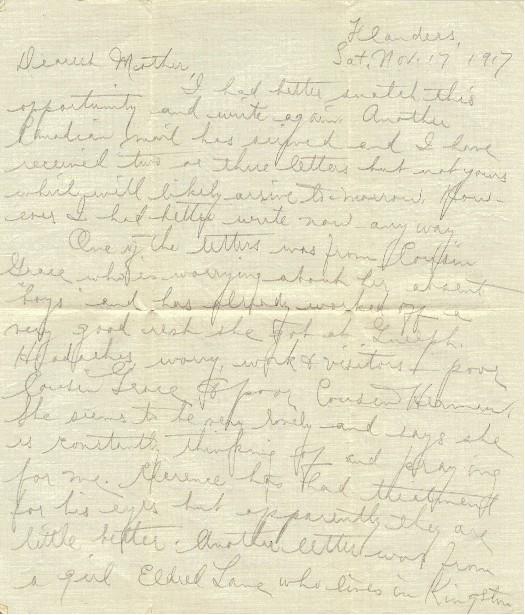 Flanders,
Sat, Nov. 17, 1917
Dearest Mother,
I had better snatch this
opportunity and write again. Another
Canadian mail has arrived and I have
received two or three letters but not yours
which will likely arrive to-morrow. How-
ever I had better write now any way
One of the letters was from "Cousin"
Grace who is worrying about her absent
"boys" and has already worked off a
very good rest she got at Guelph.
Headaches, worry, work & visitors – poor
Cousin Grace & poor Cousin Herman.
She seems to be very lonely and says she
is constantly thinking of and praying
for me. Clarence has had treatment
for his eyes but apparently they are
little better. Another letter was from
a girl Eldred Lane who lives in Kingston